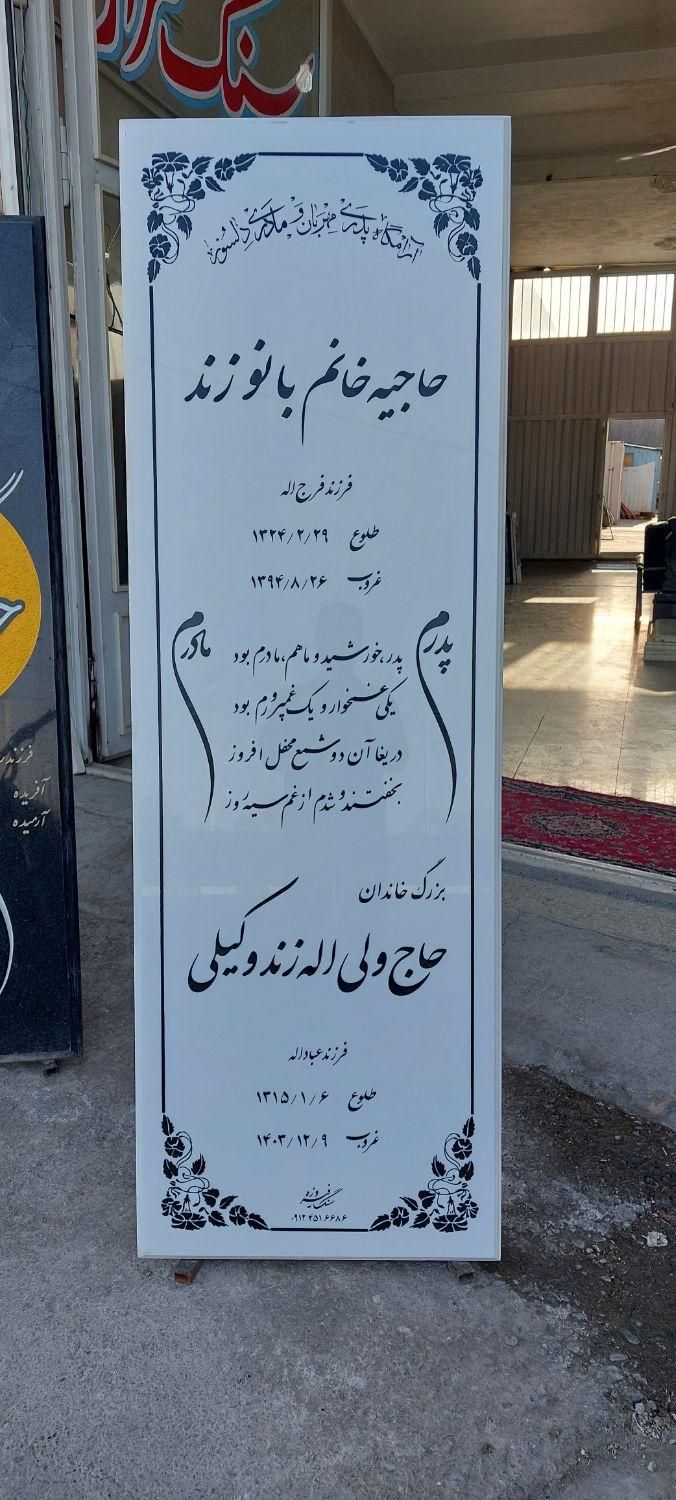 سنگ
آرامگاه پدری مهربان و مادری دلسوز
حاجیه خانم بانو زند
فرزند فرج اله
طلوع ۱۳۲۴/۲/۲۹
غروب ۱۳۹۴/۸/۲۶
پدرم
مادرم
پدر، خورشید و ماهم، مادرم بود
یکی غمخوار و یک غمپرورم بود
دریغا آن دو شمع محفل افروز
بخفتند و شدم از غم سیه روز
بزرگ خاندان
حاج ولی اله زند وکیلی
فرزند عباداله
طلوع ۱۳۱۵/۱/۶
غروب ۱۴۰۳/۱۲/۹
سنگ فیروزه
۰۹۱۲ ۴۵۱ ۶۶۸۶
فرزند
آفریده
آرمیده